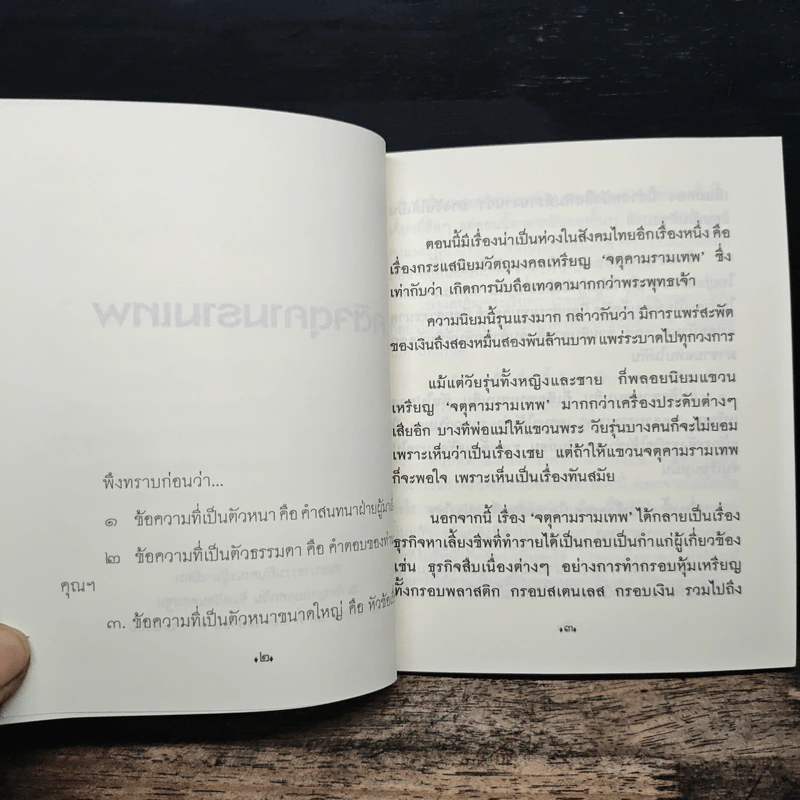 พึงทราบก่อนว่า...
๑ ข้อความที่เป็นตัวหนา คือ คำสนทนาฝ่ายผู้มา
๒ ข้อความที่เป็นตัวธรรมดา คือ คำตอบของท่าน
คุณฯ
๓. ข้อความที่เป็นตัวหนาขนาดใหญ่ คือ หัวข้อ
๒
ตอนนี้มีเรื่องน่าเป็นห่วงในสังคมไทยอีกเรื่องหนึ่ง คือ
เรื่องกระแสนิยมวัตถุมงคลเหรียญ ‘จตุคามรามเทพ’ ซึ่ง
เท่ากับว่า เกิดการนับถือเทวดามากกว่าพระพุทธเจ้า
ความนิยมนี้รุนแรงมาก กล่าวกันว่า มีการแพร่สะพัด
ของเงินถึงสองหมื่นสองพันล้านบาท แพร่ระบาดไปทุกวงการ
แม้แต่วัยรุ่นทั้งหญิงและชาย ก็พลอยนิยมแขวน
เหรียญ ‘จตุคามรามเทพ’ มากกว่าเครื่องประดับต่างๆ
เสียอีก บางทีพ่อแม่ให้แขวนพระ วัยรุ่นบางคนก็จะไม่ยอม
เพราะเห็นว่าเป็นเรื่องเชย แต่ถ้าให้แขวนจตุคามรามเทพ
ก็จะพอใจ เพราะเห็นเป็นเรื่องทันสมัย
นอกจากนี้ เรื่อง ‘จตุคามรามเทพ’ ได้กลายเป็นเรื่อง
ธุรกิจหาเลี้ยงชีพที่ทำรายได้เป็นกอบเป็นกำแก่ผู้เกี่ยวข้อง
เช่น ธุรกิจสืบเนื่องต่างๆ อย่างการทำกรอบหุ้มเหรียญ
ทั้งกรอบพลาสติก กรอบสเตนเลส กรอบเงิน รวมไปถึง
๓